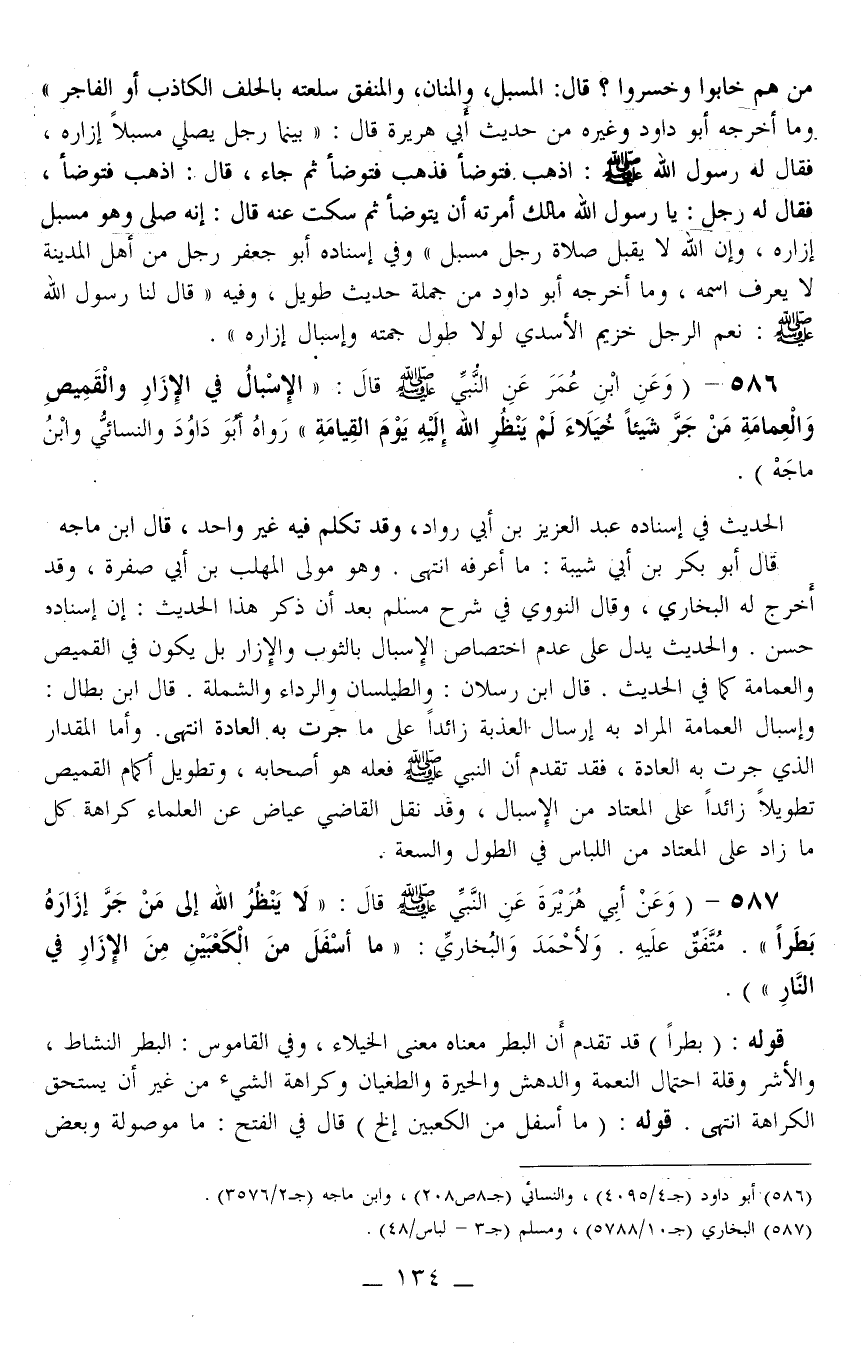 من هم خابوا وخسروا ؟ قال: المسبل، والمنان، والمنفق سلعته بالحلف الكاذب أو الفاجر »
وما أخرجه أبو داود وغيره من حديث أبي هريرة قال : « بينما رجل يصلي مسبلاً إزاره ،
فقال له رسول الله ﷺ : اذهب فتوضأ فذهب فتوضأ ثم جاء ، قال : اذهب فتوضأ ،
فقال له رجل : يا رسول الله مالك أمرته أن يتوضأ ثم سكت عنه قال : إنه صلى وهو مسبل
إزاره ، وإن الله لا يقبل صلاة رجل مسبل » وفي إسناده أبو جعفر رجل من أهل المدينة
لا يعرف اسمه ، وما أخرجه أبو داود من جملة حديث طويل ، وفيه « قال لنا رسول الله
ﷺ : نعم الرجل خزيم الأسدي لولا طول جمته وإسبال إزاره » .
٥٨٦ – ( وَعَنِ ابْنِ عُمَرَ عَنِ النَّبِّي ﷺ قالَ : « الإِسْبالُ في الإِزَارِ والْقَمِيصِ
وَالْعِمامَةِ مَنْ جَرَّ شَيئاً خُيَلَاءَ لَمْ يَنْظُرِ الله إِلَيْهِ يَوْمَ القِيامَةِ » رَواهُ أَبُوَ دَاوُدَ والنسائيُّ وابْنُ
ماجَهْ ) .
الحديث في إسناده عبد العزيز بن أبي رواد، وقد تكلم فيه غير واحد ، قال ابن ماجه
قال أبو بكر بن أبي شيبة : ما أعرفه انتهى . وهو مولى المهلب بن أبي صفرة ، وقد
أخرج له البخاري ، وقال النووي في شرح مسلم بعد أن ذكر هذا الحديث : إن إسناده
حسن . والحديث يدل على عدم اختصاص الإسبال بالثوب والإزار بل يكون في القميص
والعمامة كما في الحديث . قال ابن رسلان : والطيلسان والرداء والشملة . قال ابن بطال :
وإسبال العمامة المراد به إرسال العذبة زائداً على ما جرت به العادة انتهى. وأما المقدار
الذي جرت به العادة ، فقد تقدم أن النبي ﷺ فعله هو أصحابه ، وتطويل أكمام القميص
تطويلاً زائداً على المعتاد من الإسبال ، وقد نقل القاضي عياض عن العلماء كراهة كل
ما زاد على المعتاد من اللباس في الطول والسعة .
٥٨٧ – ( وَعَنْ أبِي هُرَيْرَةَ عَنِ النَّبيِّ ﷺ قالَ : « لَا يَنْظُرُ الله إلى مَنْ جَرَّ إزَارَهُ
بَطَراً » . مُتَّفَقٌ علَيهِ . وَلأحْمَدَ وَالبُخاريِّ : « ما أسْفَلَ منَ الْكَعْبَيْنِ مِنَ الإزَارِ في
النَّارِ » ) .
قوله : ( بطراً ) قد تقدم أن البطر معناه معنى الخيلاء ، وفي القاموس : البطر النشاط ،
والأشر وقلة احتمال النعمة والدهش والحيرة والطغيان وكراهة الشيء من غير أن يستحق
الكراهة انتهى . قوله : ( ما أسفل من الكعبين إلخ ) قال في الفتح : ما موصولة وبعض
(٥٨٦) أبو داود (جـ٤/٤٠٩٥) ، والنسائي (جـ٨ص٢٠٨) ، وابن ماجه (جـ٢/٣٥٧٦) .
(٥٨٧) البخاري (جـ١٠/٥٧٨٨) ، ومسلم (جـ٣ – لباس/٤٨) .
— ١٣٤ —